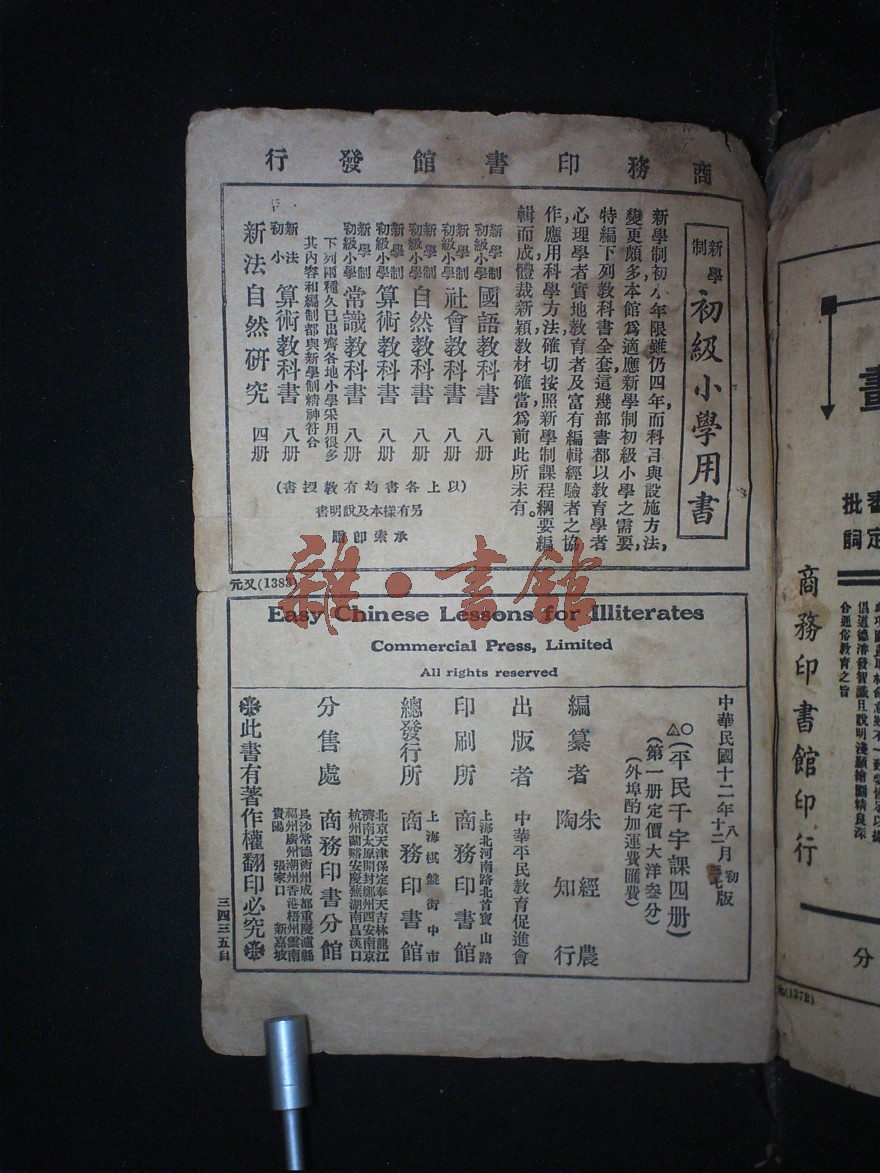 商務印書館發行
新學制
初級小學用書
新學制初小年限雖仍四年,而科目與設施方法,
變更頗多本館爲適應新學制初級小學之需要,
特編下列教科書全套這幾部書都以教育學者
心理學者實地教育者及富有編輯經驗者之協
作,應用科學方法確切按照新學制課程綱要編
輯而成體裁新穎教材確當爲前此所未有。
新學制初級小學 國語教科書 八册
新學制初級小學 社會教科書 八册
新學制初級小學 自然教科書 八册
新學制初級小學 算術教科書 八册
新學制初級小學 常識教科書 八册
下列兩種久已出齊各地小學采用很多
其內容和編制都與新學制精神符合
新法初小 算術教科書 八册
新法自然研究 四册
(以上各書均有教授書)
另有樣本及說明書
承索即贈
元又(1383)
Easy Chinese Lessons for Illiterates
Commercial Press, Limited
All rights reserved
中華民國十二年八月初版
(平民千字課四册)
(第一册定價大洋叁分)
(外埠酌加運費匯費)
編纂者 朱經農 陶知行
出版者 中華平民教育促進會
印刷所 上海北河南路北首寶山路 商務印書館
總發行所 上海棋盤街中市 商務印書館
分售處 商務印書分館
北京天津保定奉天吉林龍江
濟南太原開封鄭州西安南京
杭州蘭谿安慶蕪湖南昌漢口
長沙常德衡州成都重慶瀘縣
福州廣州潮州香港梧州雲南
貴陽 張家口 新嘉坡
此書有著作權翻印必究
三四三五自
雜·書館
審定
批詞
合通俗教育之旨
商務印書館印行
分
(1372)